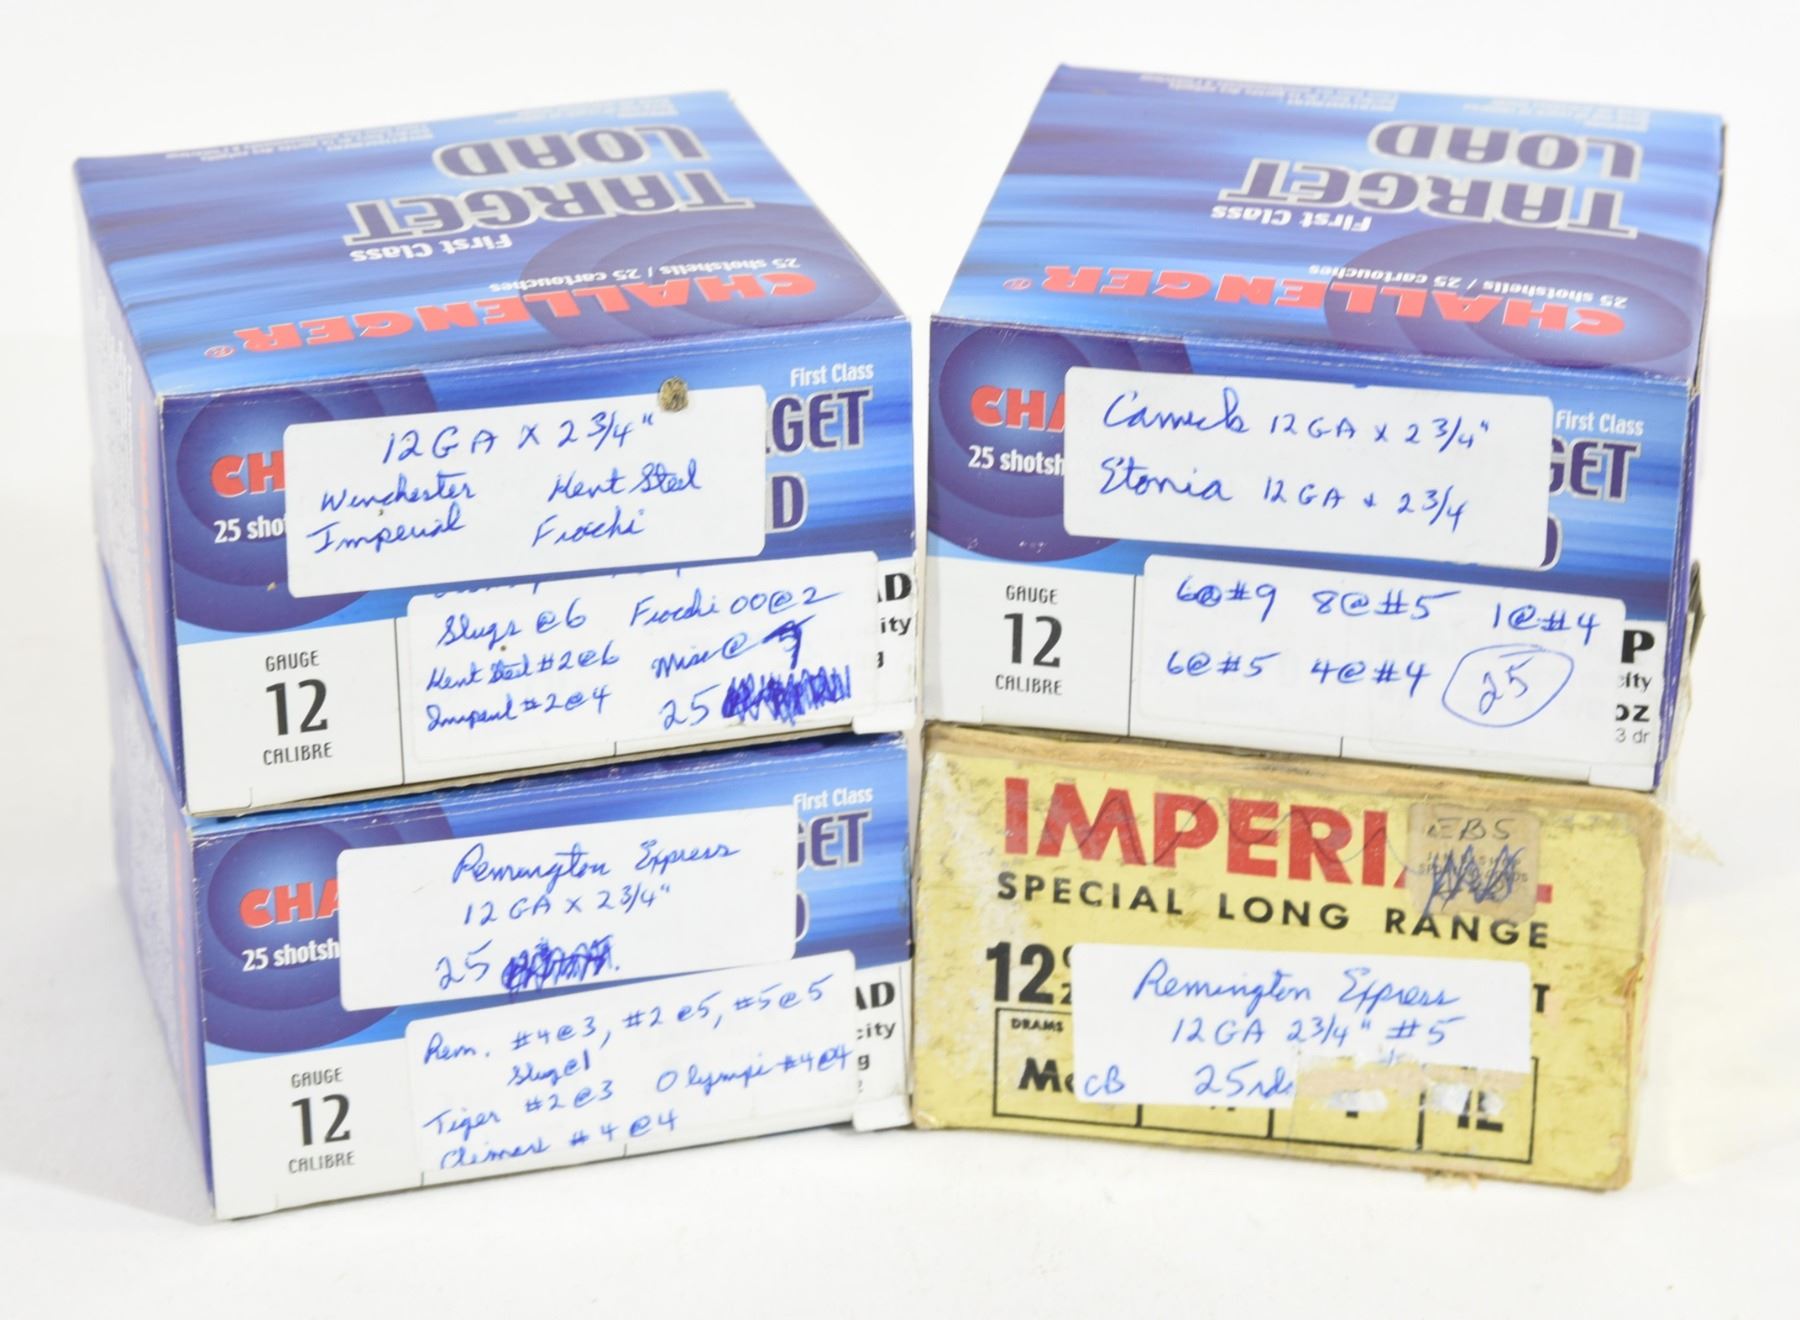 TARGET
LOAD
First Class
25 shotshells / 25 cartouches
CHALLENGER®
First Class
GET
CH
D
25 shot
12 GA X 2 3/4"
Winchester Kent Steel
Imperial Fiochi
Slugs @ 6 Fiocchi 00 @ 2
Kent Steel #2 @ 6 Misc @
Imperial #2 @ 4 25
AD
ity
g
GAUGE
12
CALIBRE
TARGET
LOAD
First Class
25 shotshells / 25 cartouches
CHALLENGER®
First Class
GET
CHA
25 shotsh
12 GA x 2 3/4"
Etonia 12 GA x 2 3/4
6@#9 8@#5 1@#4
6@#5 4@#4 25
P
city
oz
3 dr
GAUGE
12
CALIBRE
First Class
GET
CHA
25 shotsh
Remington Express
12 GA x 2 3/4"
25
Rem. #4@3, #2@5, #5@5
Slug@1
Tiger #2@3 Olympi #4@4
#4@4
AD
city
g
GAUGE
12
CALIBRE
IMPERIAL
EBS
SPECIAL LONG RANGE
12
T
DRAMS
Remington Express
12 GA 2 3/4" #5
CB 25 rds